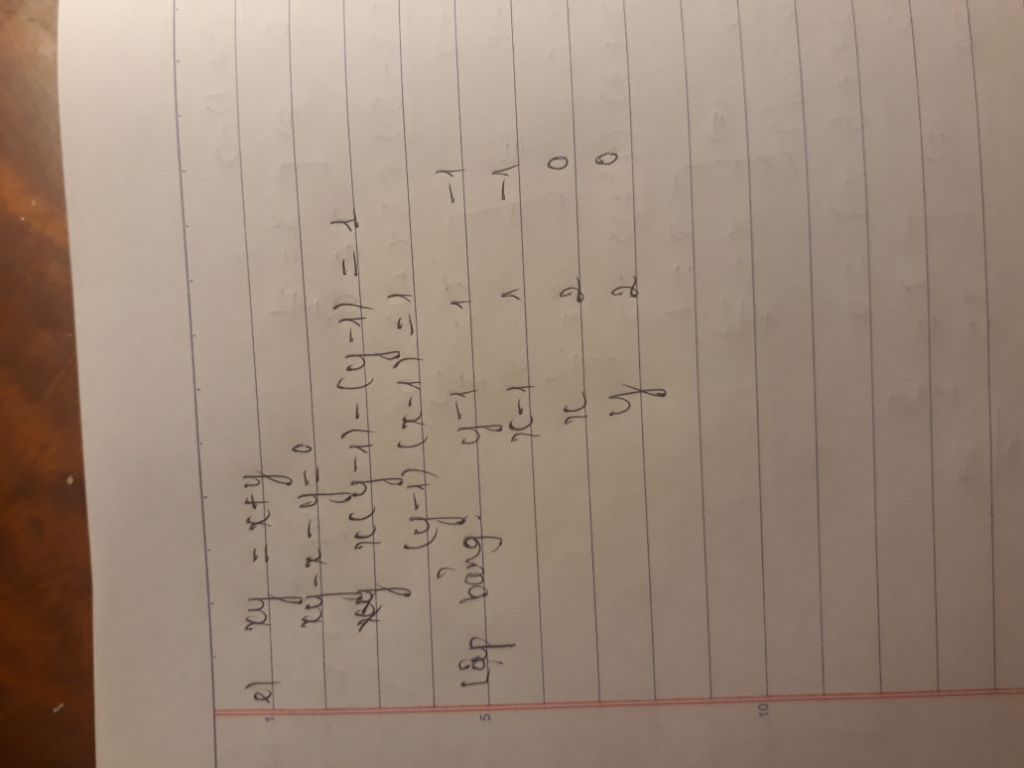 e) xy = x+y
xy - x - y = 0
x(y-1) - (y-1) = 1
(y-1)(x-1) = 1
Lập bảng: y-1 1 -1
x-1 1 -1
x 2 0
y 2 0
1
5
10